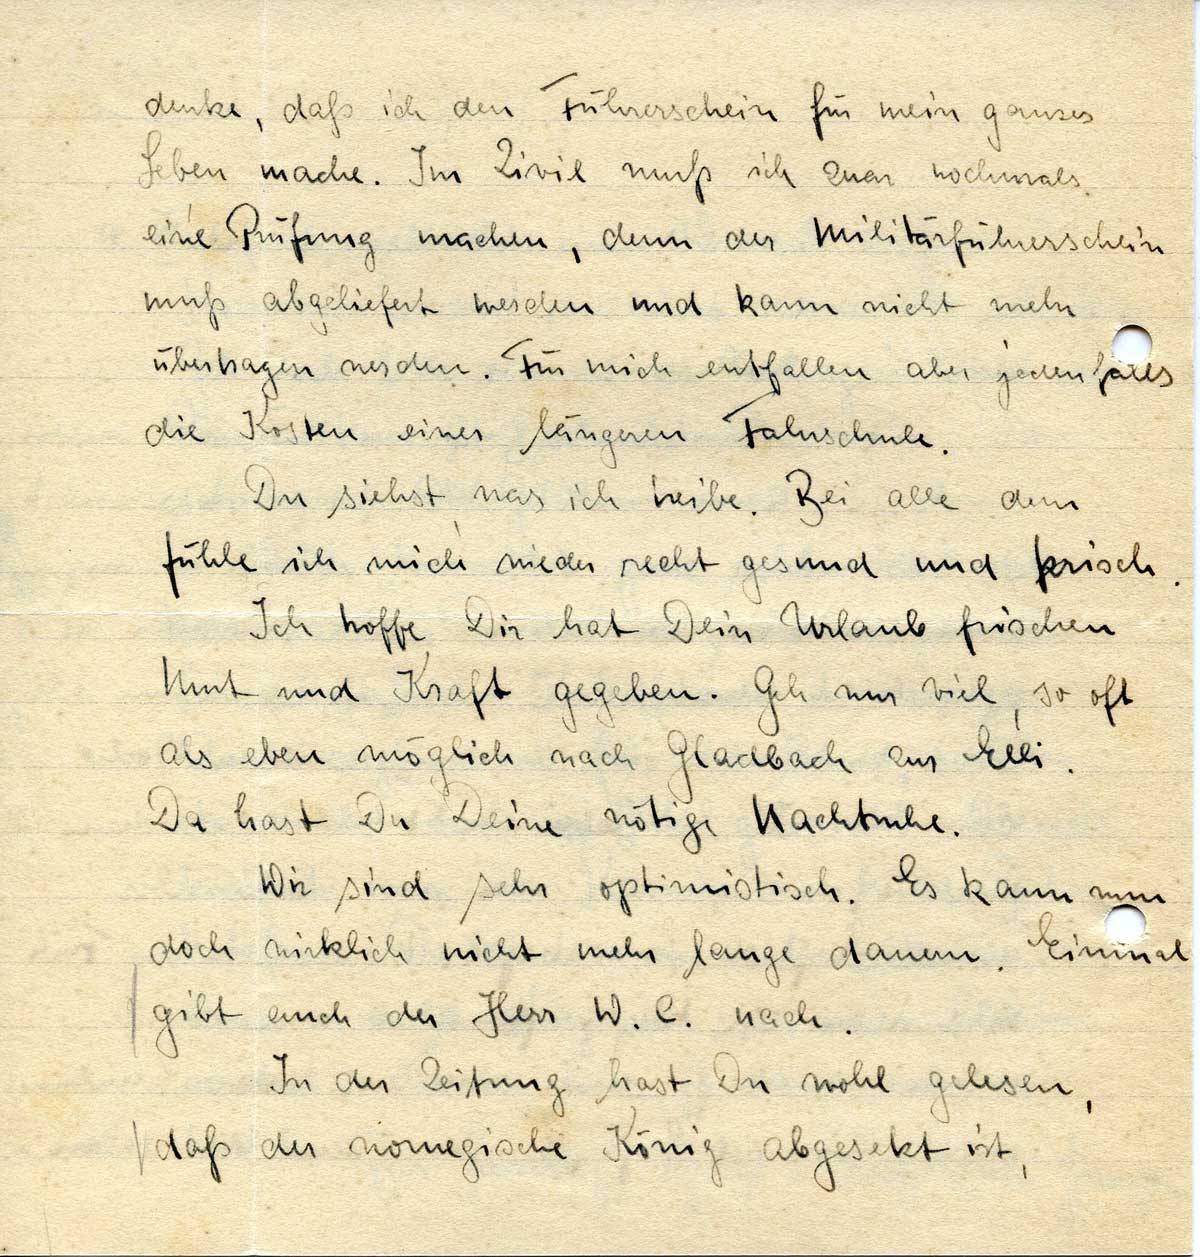 denke, daß ich den Führerschein für mein ganzes
Leben mache. Im Zivil muß ich zwar nochmals
eine Prüfung machen, denn der Militärführerschein
muß abgeliefert werden und kann nicht mehr
übertragen werden. Für mich entfallen aber jedenfalls
die Kosten einer längeren Fahrschule.
Du siehst, was ich treibe. Bei alle dem
fühle ich mich wieder recht gesund und frisch.
Ich hoffe, Dir hat Dein Urlaub frischen
Mut und Kraft gegeben. Geh nur viel, so oft
als eben möglich nach Gladbach zur Elli.
Da hast Du Deine nötige Nachtruhe.
Wir sind sehr optimistisch. Es kann nun
doch wirklich nicht mehr lange dauern. Einmal
gibt auch der Herr W. C. nach.
In der Zeitung hast Du wohl gelesen,
daß der norwegische König abgesetzt ist,